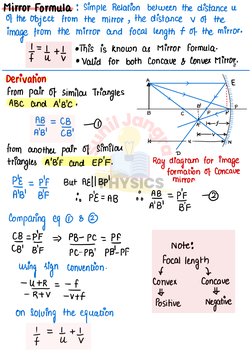 Mirror Formula : Simple Relation between the distance u
of the Object from the mirror, the distance v of the
image from the mirror and focal length f of the mirror.
1/f = 1/u + 1/v
• This is known as Mirror Formula.
• Valid for both Concave & Convex Mirror.
Derivation
From pair of similar Triangles
ABC and A'B'C.
AB/A'B' = CB/CB' —①
from another pair of similar
triangles A'B'F and EP'F.
P'E/A'B' = P'F/B'F But AE||BP'
∴ P'E=AB ∴ AB/A'B' = P'F/B'F —②
Ray diagram for image
formation of Concave
mirror
PHYSICS
Comparing eq ① & ②
CB/CB' = P'F/B'F ⇒ PB-PC/PC-PB' = PF/PB'-PF
using sign convention
-u+R/-R+v = -f/-v+f
on solving the equation
1/f = 1/u + 1/v
Note:
Focal length
Convex Concave
Positive Negative